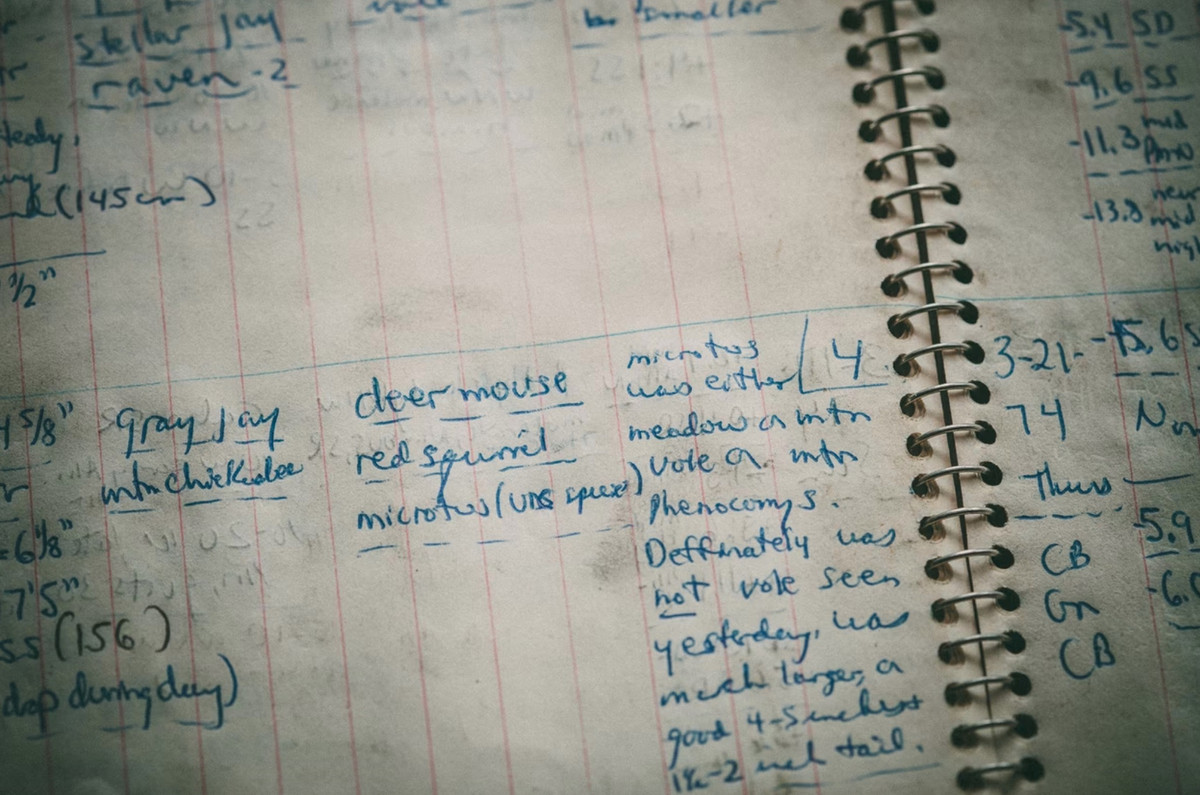 stellar jay
raven - 2
(145cm)
1/2"
smaller
-5.4 SD
-9.6 SS
-11.3 mid
-13.8 near
mid
5/8" gray jay deer mouse
mtn chickadee red squirrel
microtus (UNS species)
6 1/8"
7'5"
SS (156)
drop during day)
microtus 4
was either
meadow or mtn
vole or mtn
Phenocomys.
Deffinately was
not vole seen
yesterday, was
much larger, a
good 4-5 inches +
1 1/2-2 inch tail.
3-21-
74
Thurs
CB
Gn
CB
-15.6
-5.9